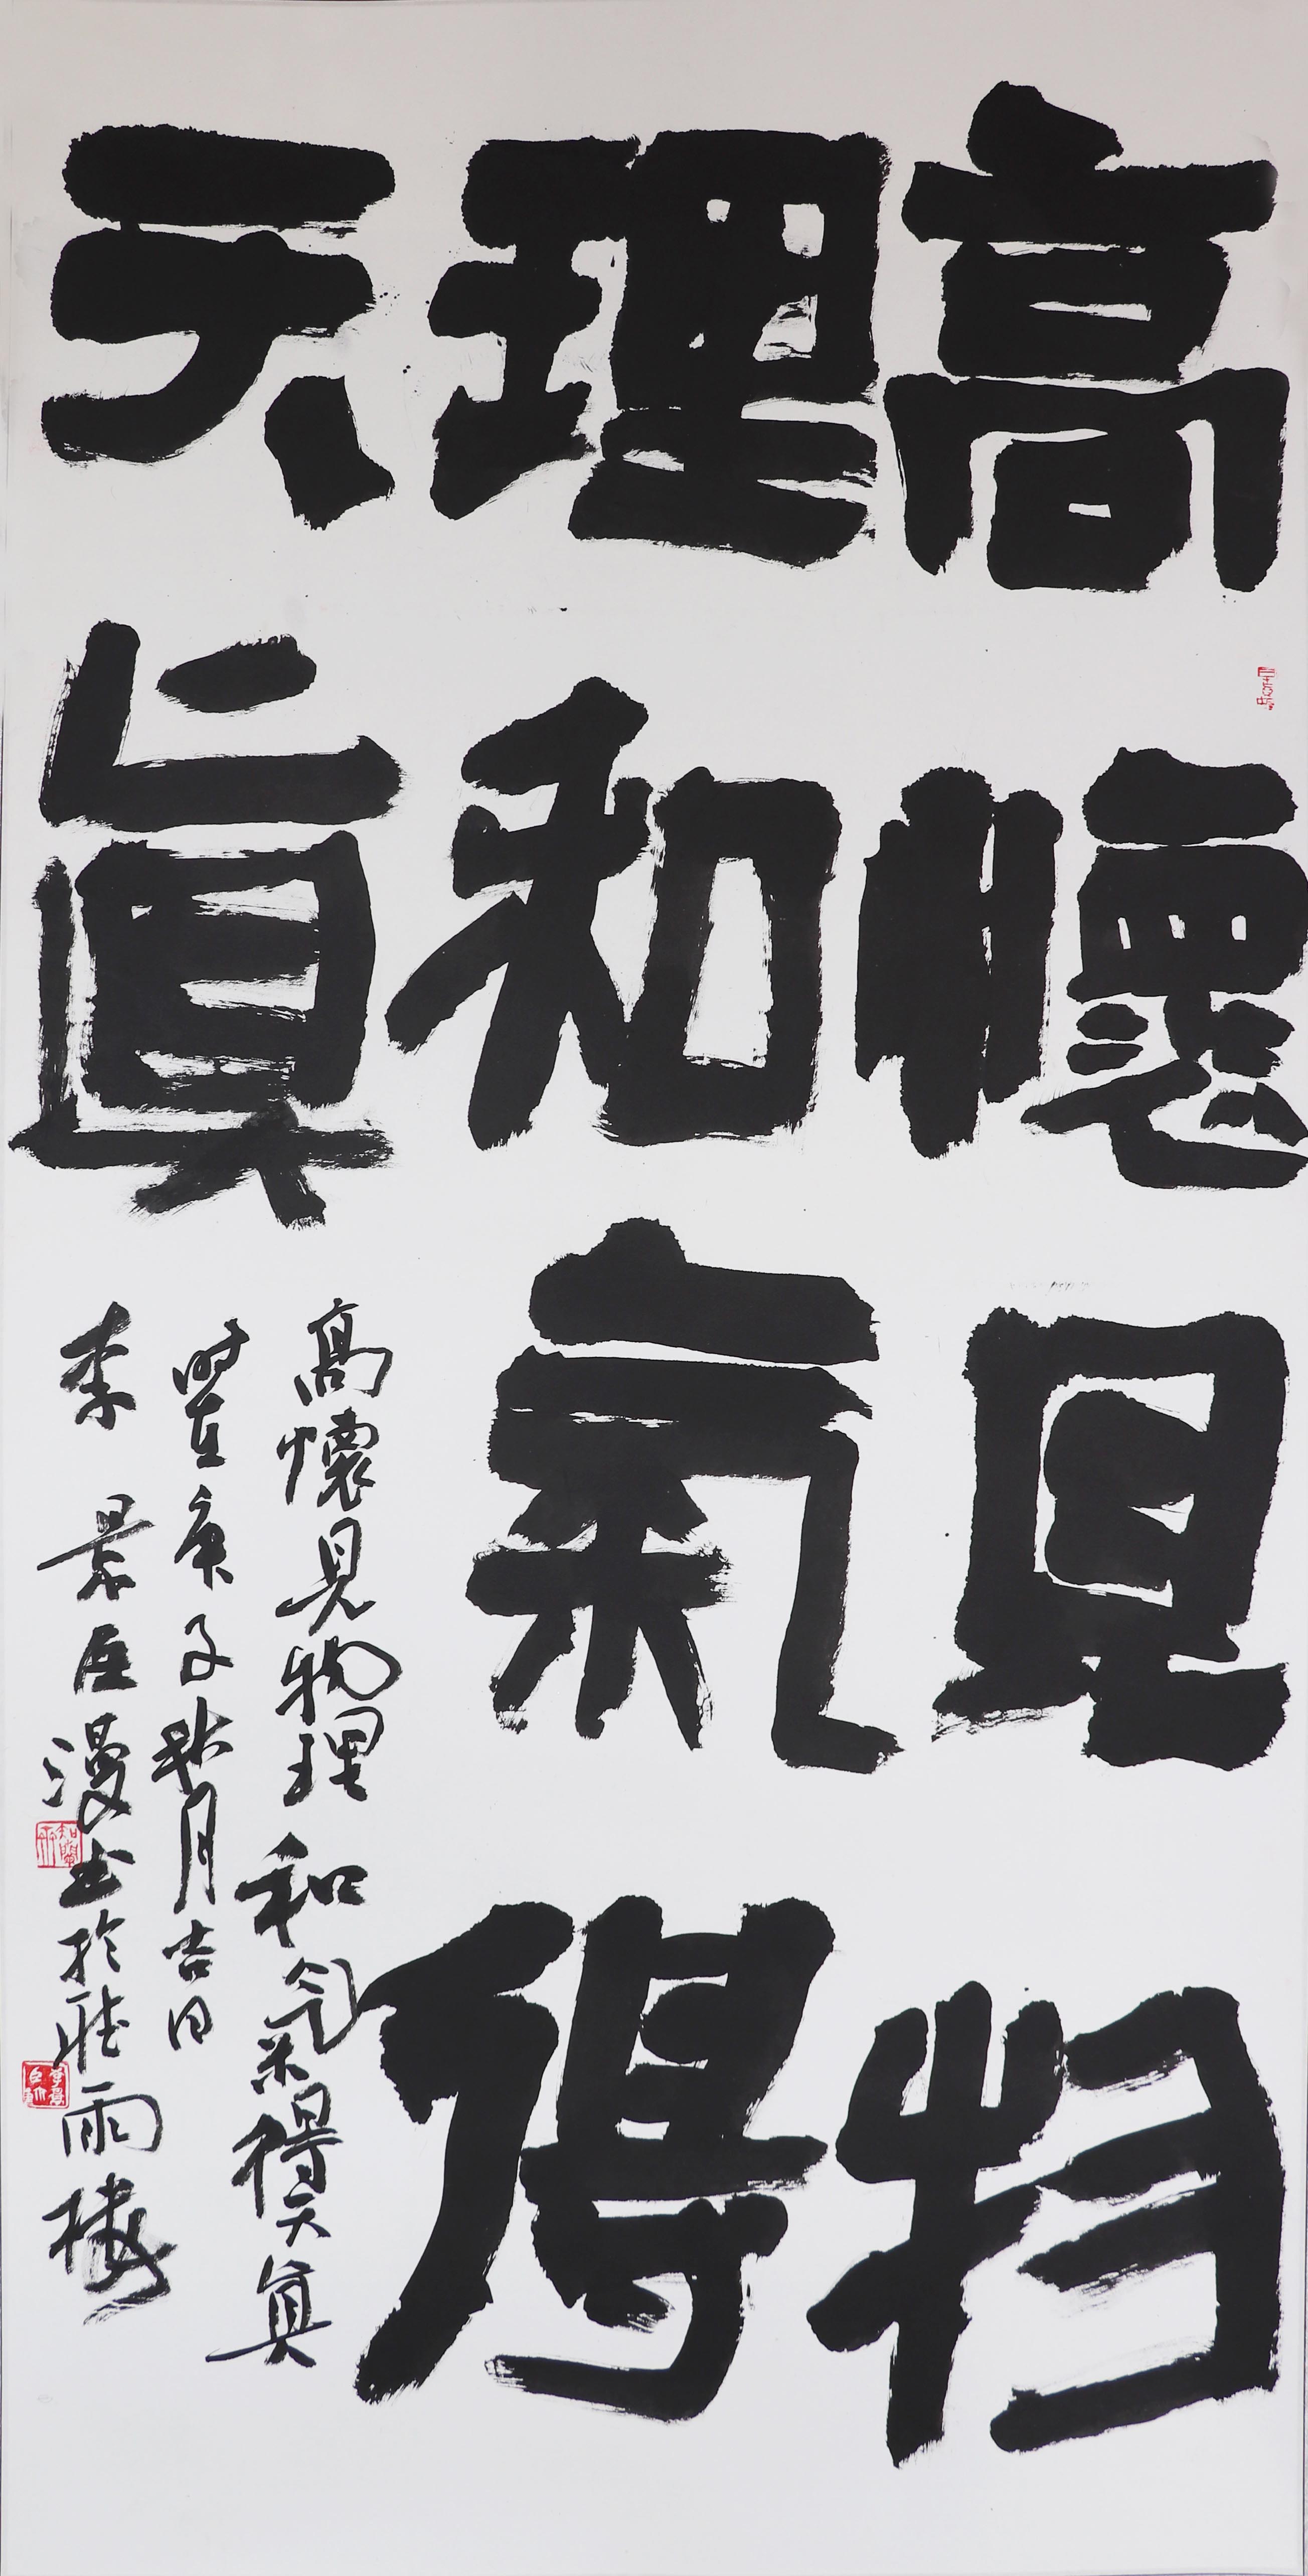 高懷見物
理和氣得
天真
高懷見物理和氣得天真
時在庚子秋月吉日
李景臣漫書於聽雨樓